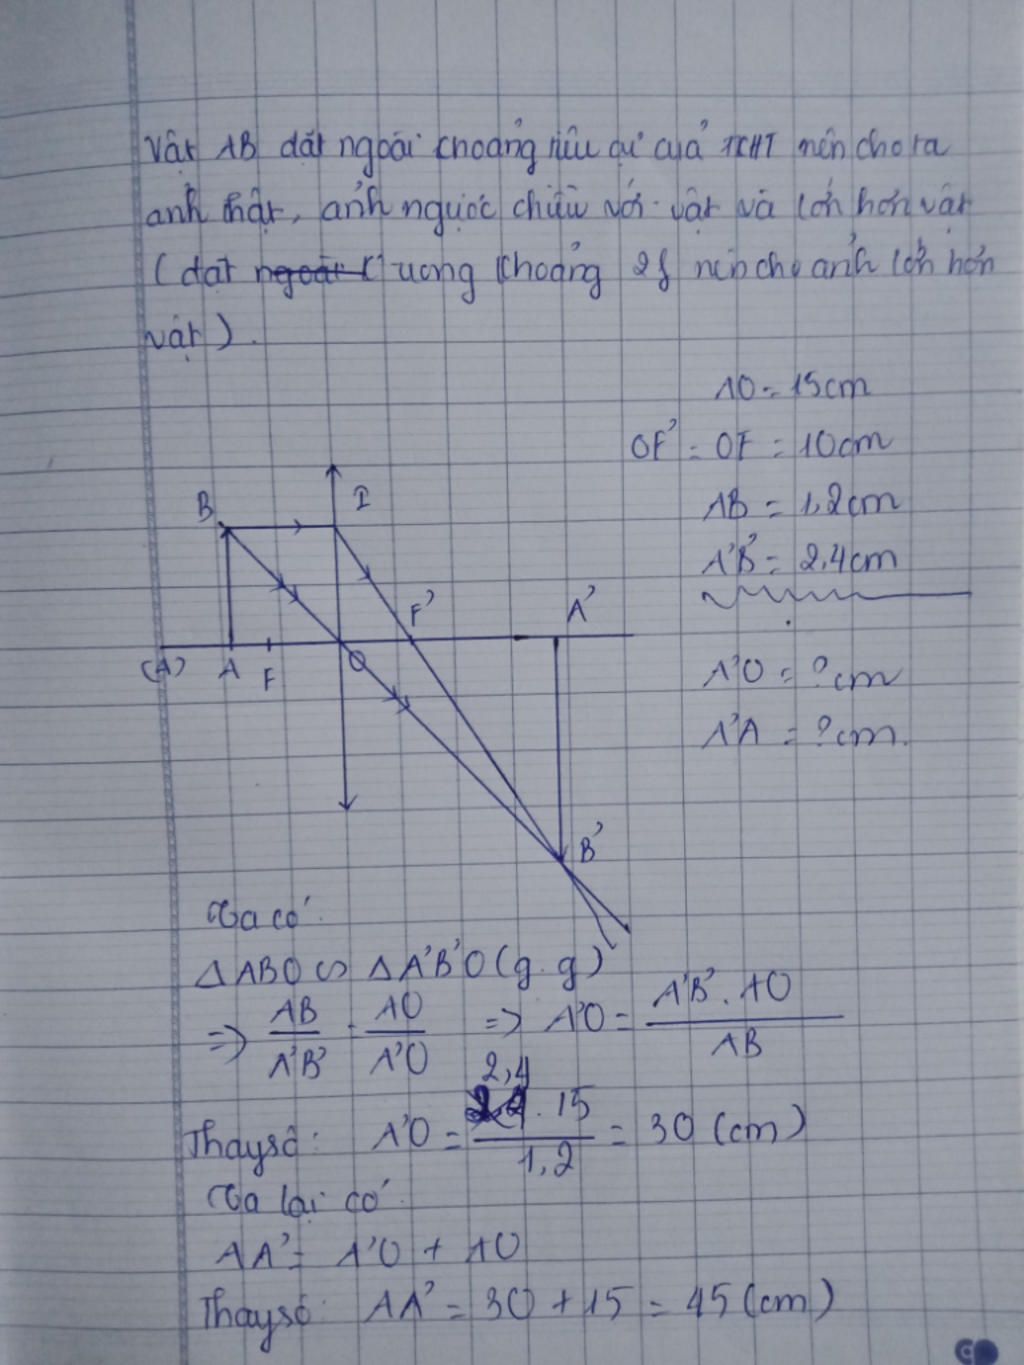 Vật AB đặt ngoài khoảng tiêu cự của TKHT nên cho ra
ảnh thật, ảnh ngược chiều với vật và lớn hơn vật
(đặt ngoài trong khoảng 2f nên cho ảnh lớn hơn
vật).
AO = 15cm
OF' = OF = 10cm
AB = 1,2cm
A'B' = 2,4cm
A'O = ?cm
A'A = ?cm.
B
I
F'
A'
(A)
A
F
O
B'
Ta có:
ΔABO ∽ ΔA'B'O (g.g)
=> AB/A'B' = AO/A'O => A'O = A'B'.AO/AB
Thay số: A'O = 2,4.15/1,2 = 30 (cm)
Ta lại có:
AA' = A'O + AO
Thay số: AA' = 30 + 15 = 45 (cm)